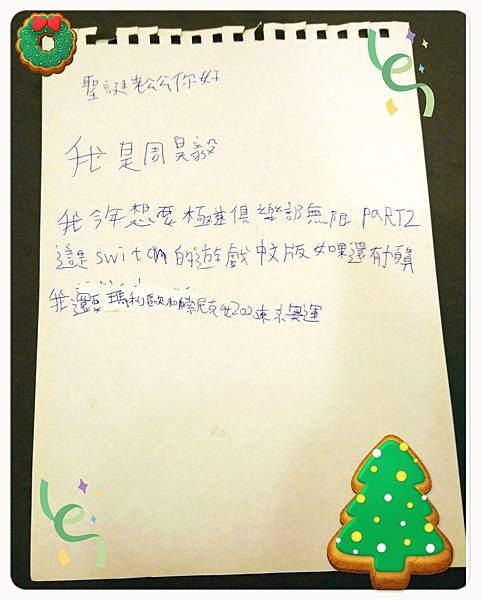 聖誕老公公你好
我是周昊毅
我今年想要極速俱樂部無限 PART2
這是switch的遊戲中文版如果還有預算
我還要瑪利歐和索尼克在2020東京奧運